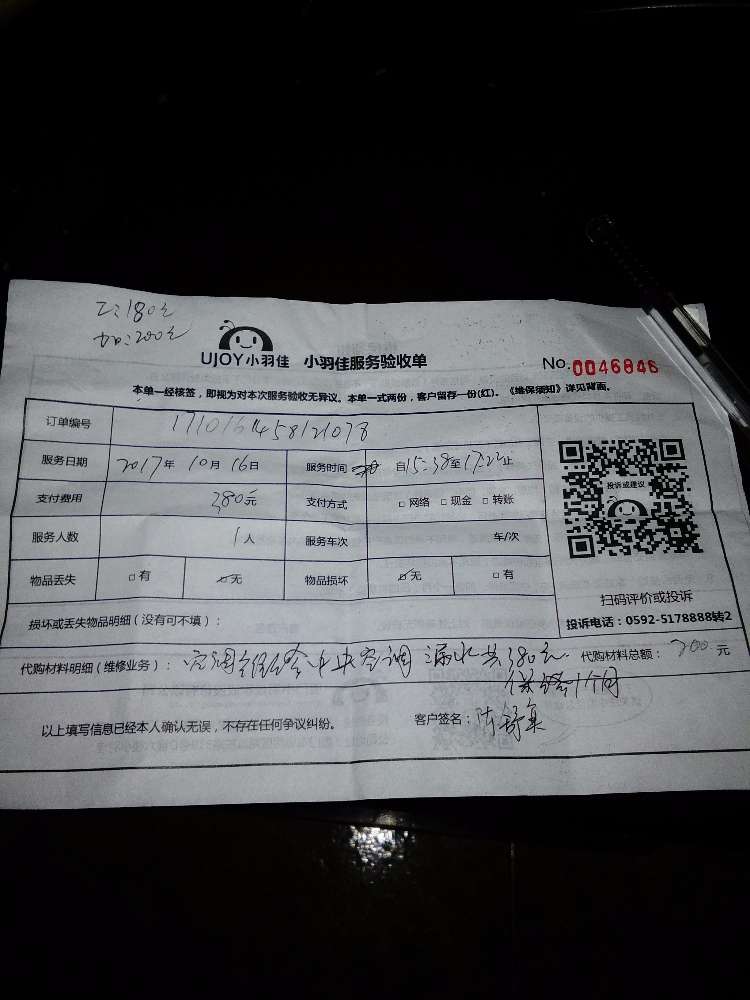 工:180元
加:200元
UJOY小羽佳 小羽佳服务验收单 No.0046846
本单一经核签，即视为对本次服务验收无异议。本单一式两份，客户留存一份(红)。《维保须知》详见背面。
订单编号 171016458121078
服务日期 2017年 10月 16日 服务时间 自15:38至17:22止
支付费用 380元 支付方式 □网络 □现金 □转账
服务人数 1人 服务车次 车/次
物品丢失 □有 ☑无 物品损坏 ☑无 □有
损坏或丢失物品明细（没有可不填）：
投诉或建议
扫码评价或投诉
投诉电话：0592-5178888转2
代购材料明细（维修业务）： 空调 中央空调 漏水共380元. 代购材料总额： 200元
保修1个月
以上填写信息已经本人确认无误，不存在任何争议纠纷。 客户签名： 陈